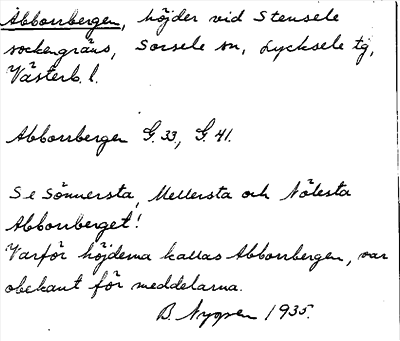 Abborrbergen, höjder vid Stensele
sockengräns, Sorsele sn, Lycksele tg,
Västerb. l.
Abborrbergen G. 33, G. 41.
Se Sönnersta, Mellersta och Nölesta
Abborrberget!
Varför höjderna kallas Abborrbergen, var
obekant för meddelarna.
B. Nygren 1935.